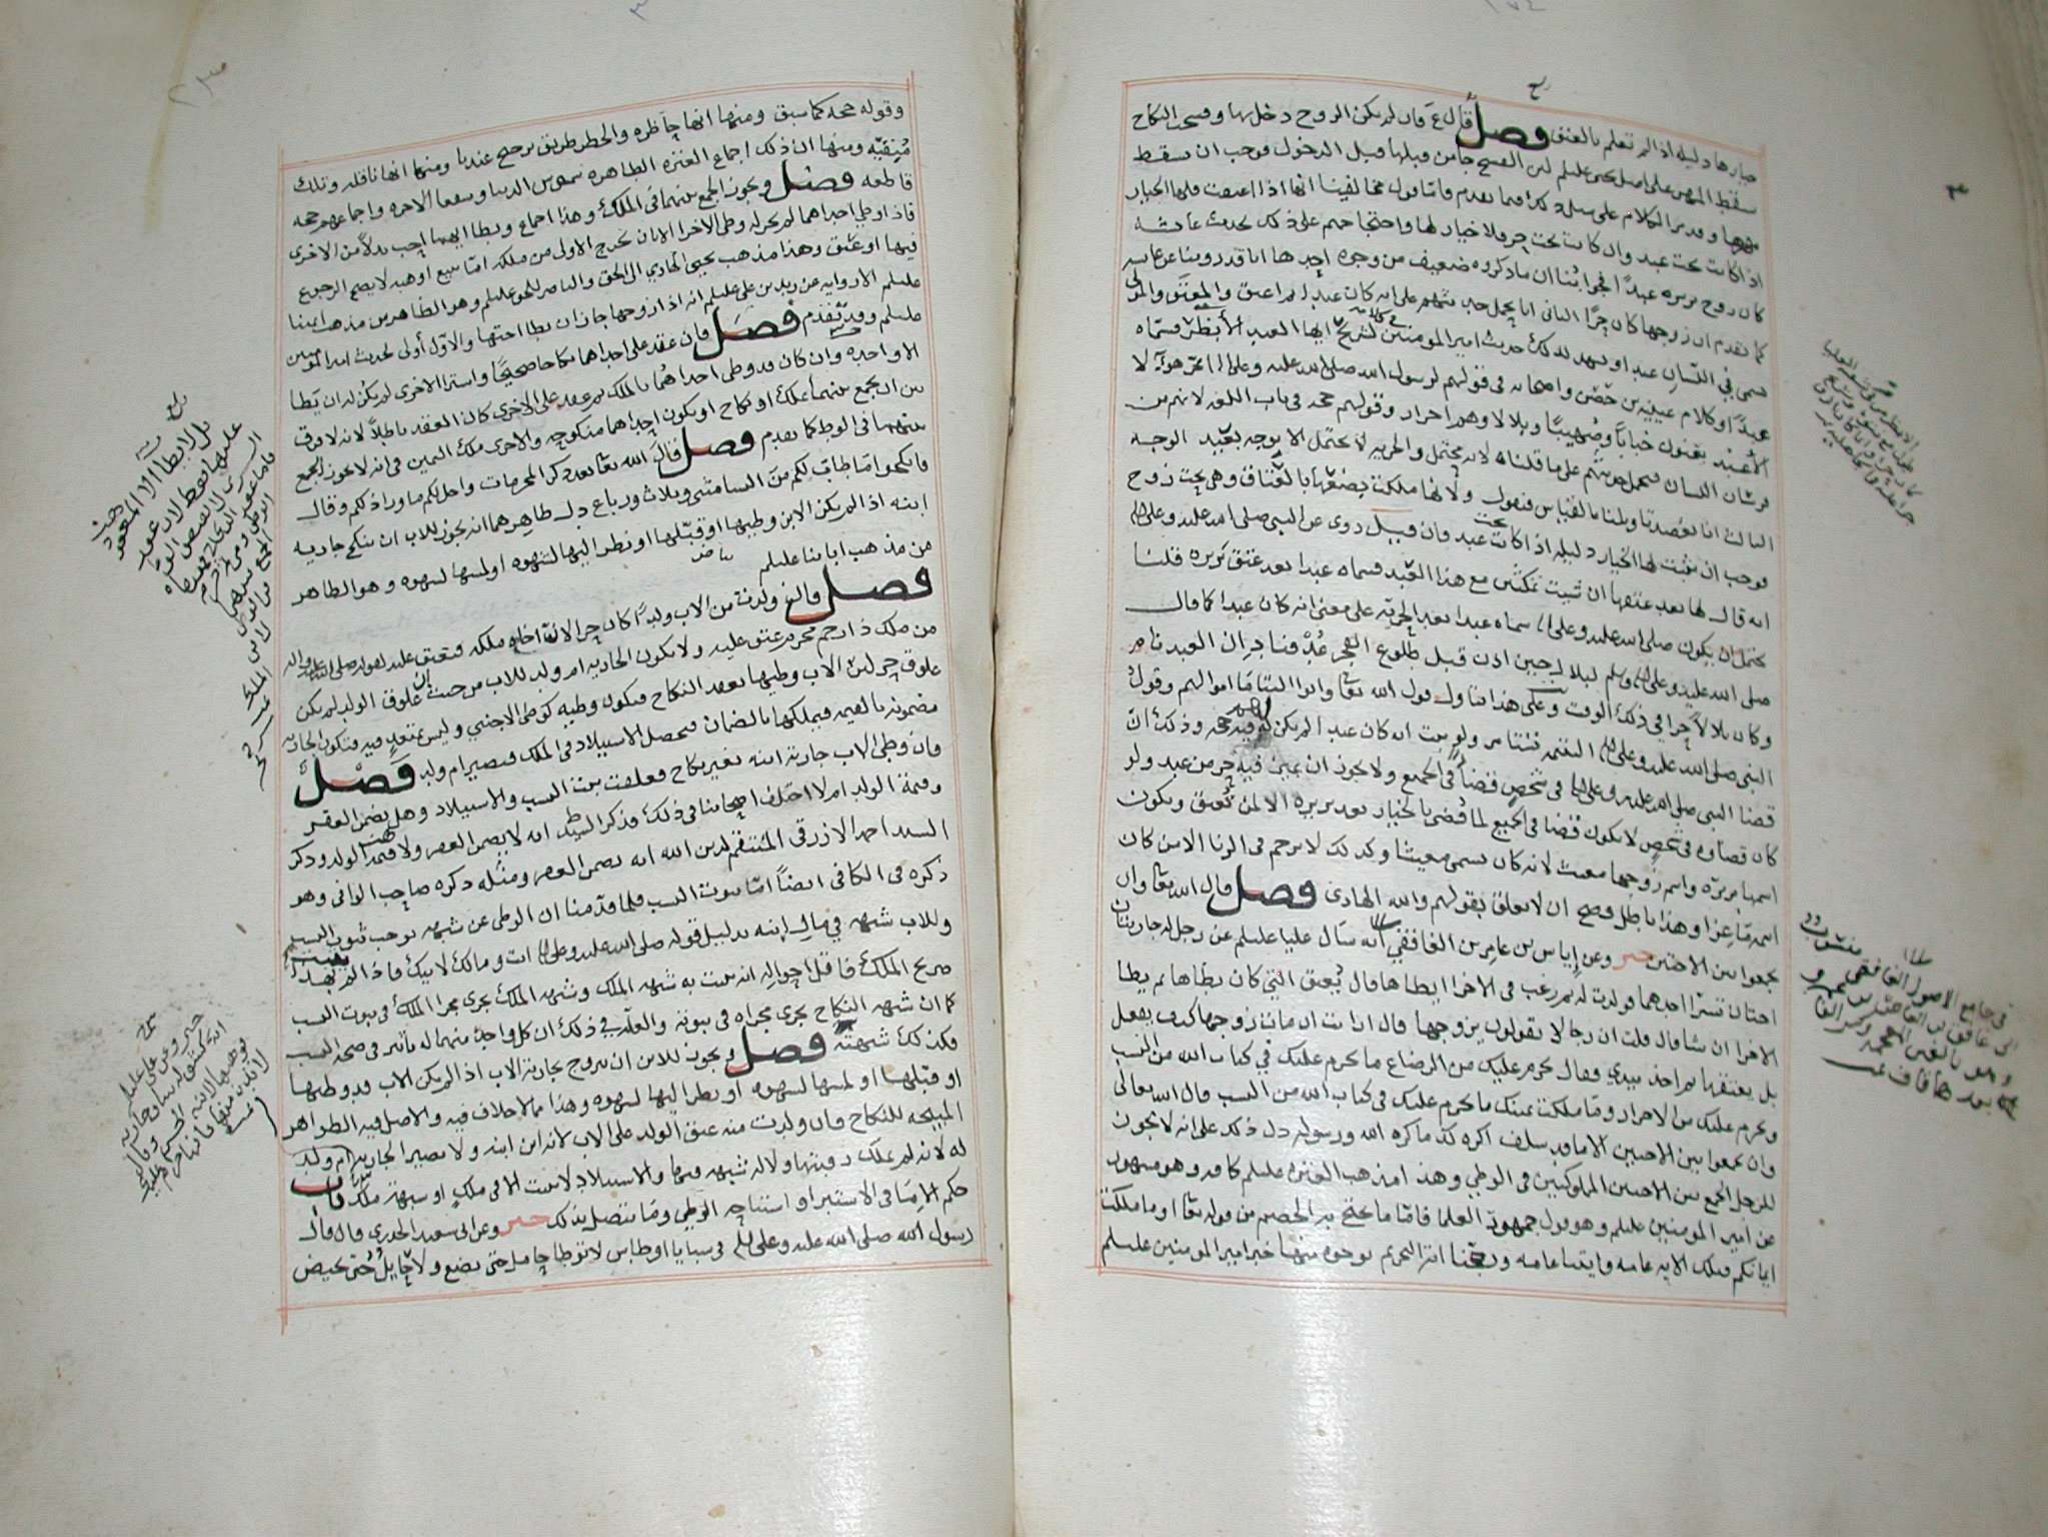 خيارها دليله اذا لم تعلم بالعتق فصل قال ع فان لم يكن الزوج دخل بها وفسحت النكاح
سقط المهر على اصل يحيى عليلم لان الفسخ جا من قبلها قبل الدخول فوجب ان يسقط
مهرها وقد مر الكلام على مثل ذلك فيما تقدم فاما قول مخالفينا انها اذا اعتقت فلها الخيار
اذا كانت تحت عبد وان كانت تحت حر فلا خيار لها واحتجاجهم على ذلك بحديث عائشة
كان زوج بريره عبدًا فجوابنا ان ما ذكروه ضعيف من وجوه احدها انا قد روينا عن عائشه
كما تقدم ان زوجها كان حرًا الثاني انا نحمل حديثهم على انه كان عبدا ثم اعتق والمعتق والمولى
يسمى في اللسان عبدا ويشهد لذلك حديث امير المومنين لشريح ايها العبد الأبظر فسماه
عبدًا وكلام عيينه بن حصن واصحابه في قولهم لرسول الله صلى الله عليه وعلى اله ما تحر هولآء لا
الأعبد يعنون خبابًا وصهيبًا وبلالا وهم احرار وقولهم حجه في باب اللغه لانهم من
فرسان اللسان فيحمل حديثهم على ما قلناه لانه يحتمل والحريه لا تحتمل الا بوجه بعيد الوجه
الثالث انا نعضد تاويلنا بالقياس فنقول ولأنها ملكت بضعها بالعتاق وهي تحت زوج
فوجب ان يثبت لها الخيار دليله اذا كانت تحت عبد فان قيل روى عن النبي صلى الله عليه وعلى اله
انه قال لها بعد عتقها ان شيت تمكثين مع هذا العبد فسماه عبدا بعد عتق بريره قلنا
يحتمل ان يكون صلى الله عليه وعلى اله سماه عبدا بعد الحريه على معنى انه كان عبدا كما قال
صلى الله عليه وعلى اله وسلم لبلال حين اذن قبل طلوع الفجر عُدْ فناد ان العبد نام
وكان بلال حرا في ذلك الوقت وعلى هذا يتاول قول الله تعا واتوا اليتامَا اموالهم وقول
النبي صلى الله عليه وعلى اله اليتيمه تستامر ولو ثبت انه كان عبدا لم يكن لهم فيه حجه وذلك انّ
قضا النبي صلى الله عليه وعلى اله في شخصٍ قضاً في الجميع ولا يجوز ان يميز فيه حر من عبد ولو
كان قضاوه في شخصٍ لا يكون قضا في الجميع لما قُضي بالخيار بعد بريره الا لمن تُعتق ويكون
اسمها بريره واسم زوجها مغيث لانه كان يسمى مغيثا وكذلك لا يرجم في الزنا الا من كان
اسمه ماعزا وهذا باطل فصح ان لا تعلق بقولهم والله الهادي فصل قال الله تعا وان
تجمعوا بين الاختين خبر وعن إياس بن عامر بن الغافقي انه سَال عليا عليلم عن رجل له جاريتان
اختان تسرّا احدهما فولدت له ثم رغب في الاخرا ايطاها قال يُعتق التي كان يطاها ثم يطا
الاخرا ان شا قال قلت ان رجالا يقولون يزوجها قال ارايت ان مات زوجها كيف يفعل
بل يعتقها ثم اخذ بيدي وقال يحرم عليك من الرضاع ما يحرم عليك في كتاب الله من النسب
ويحرم عليك من الاحرار ومَا ملكت يمينك ما يحرم عليك في كتاب الله من النسب قال الله تعالى
وان تجمعوا بين الاختين الا ما قد سلف اكره كذ ما كره الله ورسوله دل ذلك على انه لا يجوز
للرجل الجمع بين الاختين المملوكتين في الوطي وهذا مذهب العتره عليلم كافه وهو مشهور
عن امير المومنين عليلم وهو قول جمهور العلما فامّا ما يحتج به الخصم من قوله تعا او ما ملكت
ايمانكم فتلك الايه عامه وايتنا عامه ورجحنا ايه التحريم بوجوه منها خبر امير المومنين عليلم
في جامع الاصول الغافقي منسوب
الى غافق بن
وهو بالغين المعجمه وكسر الفا
بعدها قاف
وقوله حجه كما سبق ومنها انها حاظره والحظر طريق ترجيح عندنا ومنها انها ناقله وتلك
مُبقيّه ومنها ان ذلك اجماع العتره الطاهره شموس الدنيا وشفعا الاخره واجماعهم حجه
قاطعه فصل ويجوز الجمع بينهما في الملك وهذا اجماع ويطا ايهما احب بدلاً من الاخرى
فاذا وطي احداهما لم يجز له وطي الاخرا الا بان يخرج الاول من ملكه امّا ببيع او هبه لا يصح الرجوع
فيها او عتق وهذا مذهب يحيى الهادي الى الحق والناصر للحق عليلم وهو الظاهر من مذهب ايمتنا
عليلم الا روايه عن زيد بن علي عليلم انه اذا زوجها جاز ان يطا اختها والاوّل أولى لحديث امير المومنين
عليلم وقد تقدم فصل فان عقد على احداهما نكاحا صحيحًا واسترا الاخرى لم يكن له ان يَطا
الا واحده وان كان قد وطى احداهُما بالملك ثم عقد على الاخرى كان العقد باطلاً لانه لا فرق
بين ان يجمع بينهما بملك او نكاح او يكون احداهما منكوحه والاخرى ملك اليمين في انه لا يجوز الجمع
بينهما في الوطي كما تقدم فصل قال الله تعا بعد ذكر المحرمات واحل لكم ما ورا ذلكم وقال
فانكحوا مَا طابَ لكم منَ النسا مثنى وثلاث ورباع دل ظاهرهما انه يجوز للاب ان ينكح جاريه
ابنه اذا لم يكن الابن وطيها او قبّلها او نظر اليها لشهوه او لمسها لشهوه وهو الظاهر
من مذهب ابائنا عليلم
فصل فان ولدت من الاب ولدًا كان حرا لانه اخاه ملكه فيعتق عليه لقوله صلى الله عليه واله
من ملك ذا رحم محرم عتق عليه ولا يكون الجاريه ام ولد للاب من حيث ان علوق الولد لم يكن
علوق حر لان الاب وطيها بعقد النكاح فيكون وطيه كوطى الاجنبي وليس متعدٍ فيه فتكون الجاريه
مضمونه بالقيمه فيملكها بالضمان فيحصل الاستيلاد في الملك فتصير ام ولد فصل
فان وطى الاب جارية ابنه بغير نكاح فعلقت ثبت النسب والاستيلاد وهل يضمن العقر
وقيمة الولد ام لا اختلف اصحابنا في ذلك فذكر السيد ط انه لا يضمن العقر ولا قيمة الولد وذكر
السيد احمد الازرقي المنتقم لدين الله انه يضمن العقر ومثله ذكره صاحب الوافي وهو
ذكره في الكافي ايضاً امّا ثبوت النسب فلما قدّمنا ان الوطى عن شبهه يوجب ثبوت النسب
وللاب شبهه في مال ابنه بدليل قوله صلى الله عليه وعلى اله انت ومالك لابيك فاذا لم يفد
صريح الملك فاقل احواله انه يثبت به شبهه الملك وشبهه الملك يجري مجرا الملك في ثبوت النسب
كما ان شبهه النكاح يجري مجراه في ثبوته والعلّه في ذلك ان كل واحد منهما له تاثير في صحه النسب
فكذلك شبهته فصل ويجوز للابن ان يتزوج بجارية الاب اذا لم يكن الاب قد وطيها
او قبّلها او لمسها لشهوه او نظر اليها لشهوه وهذا مما لا خلاف فيه والاصل فيه الظواهر
المبيحه للنكاح فان ولدت منه عتق الولد على الاب لانه ابن ابنه ولا تصير الجاريه ام ولد
له لانه لم يملك رقبتها ولا له شبهه فيها والاستيلاد لا يثبت الا في ملكٍ او شبهة ملك باب
حكم الامَا في الاستبرا واستباحه الوطي ومَا يتصل بذلك خبر وعن ابي سعيد الخدري قال قال
رسول الله صلى الله عليه وعلى اله في سبايا اوطاس لا توطا حامل حتى تضع ولا حايل حتى تحيض